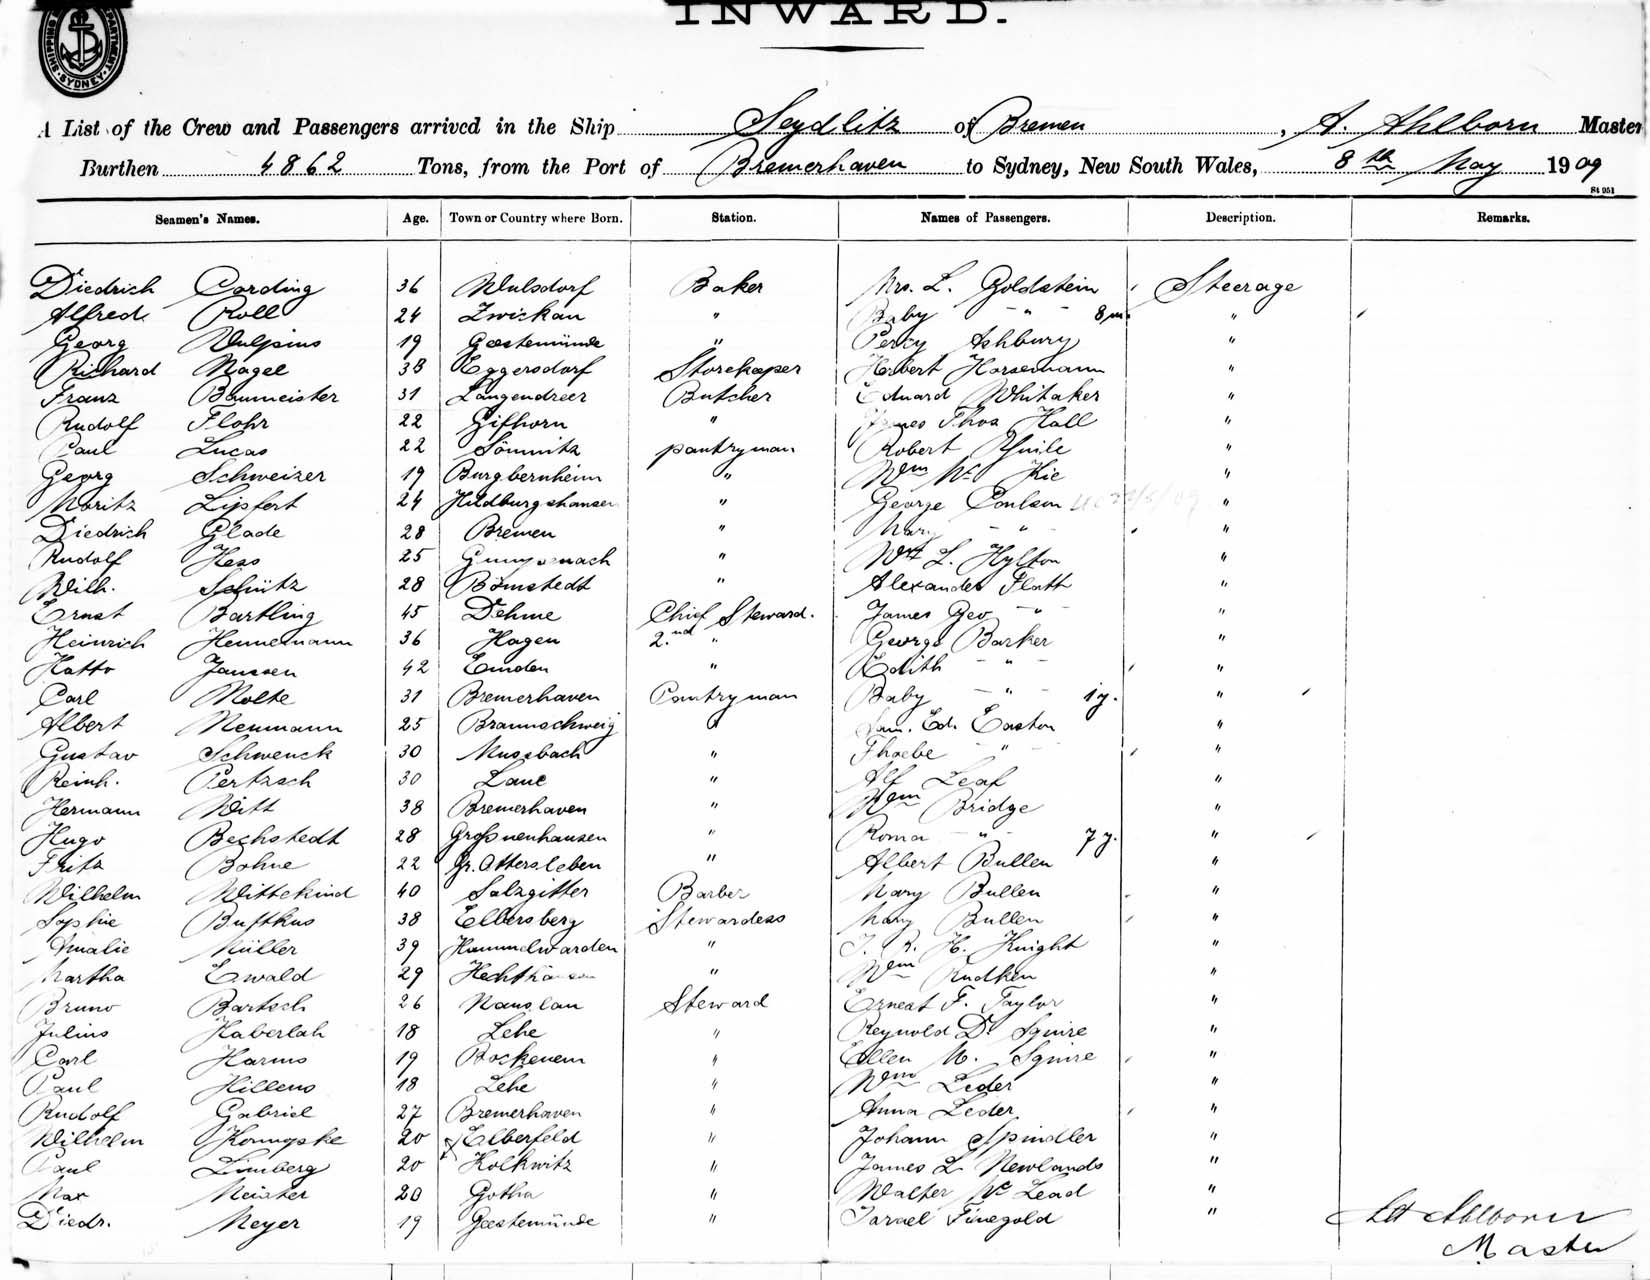 INWARD.
SHIPPING DEPARTMENT SYDNEY
A List of the Crew and Passengers arrived in the Ship Seydlitz of Bremen, A. Ahlborn Master
Burthen 4862 Tons, from the Port of Bremerhaven to Sydney, New South Wales, 8th May 1909
St 951
Seamen's Names. Age. Town or Country where Born. Station. Names of Passengers. Description. Remarks.
Diedrich Cording 36 Wulsdorf Baker Mrs. L. Goldstein Steerage
Alfred Roll 24 Zwickau " Baby - " - 8 m. "
Georg Vulpius 19 Geestemünde " Percy Ashbury "
Richard Nagel 38 Eggersdorf Storekeeper Herbert Horsemann "
Franz Baumeister 31 Langendreer Butcher Eduard Whitaker "
Rudolf Flohr 22 Gifhorn " James Thos Hall "
Paul Lucas 22 Sömmitz pantryman Robert "
Georg Schweizer 19 Burgbernheim " Wm Mc Kie "
Moritz Lipfert 24 Hildburgshausen " George Coulson "
Diedrich Glade 28 Bremen " Mary - " - "
Rudolf Hess 25 " Wm L. Hylton "
Wilh. Schütz 28 Bömstedt " Alexander Flatt "
Ernst Bartling 45 Dehme Chief Steward. James Geo - " - "
Heinrich Hennemann 36 Hagen 2nd " George Barker "
Hatto Janssen 42 Emden " Edith - " - "
Carl Nolte 31 Bremerhaven Pantryman Baby - " - 1 y. "
Albert Neumann 25 Braunschweig " Sam. Ed. Easton "
Gustav Schwenck 30 Mussbach " Phoebe - " - "
Reinh. Pertzsch 30 Laue " Alf Leaf "
Hermann Witt 38 Bremerhaven " Wm Bridge "
Hugo Bechstedt 28 Grossneuhausen " Roma - " - 7 y. "
Fritz Bohne 22 Gr. Ottersleben " Albert Bullen "
Wilhelm Wittekind 40 Salzgitter Barber Mary Bullen "
Sophie Buftkus 38 Elbersberg Stewardess Mary Bullen "
Amalie Müller 39 Hammelwarden " J. R. H. Knight "
Martha Ewald 29 " Wm Rudken "
Bruno Bartsch 26 Namslau Steward Ernest F. Taylor "
Julius Haberlah 18 Lehe " Reynold D. Squire "
Carl Harms 19 Bockenem " Ellen M. Squire "
Paul Hillens 18 Lehe " Wm Leder "
Rudolf Gabriel 27 Bremerhaven " Anna Leder "
Wilhelm 20 Elberfeld " Johann Spindler "
Paul Limberg 20 Kolkwitz " James L. Newlands "
Max Meister 20 Gotha " Walter Mc Lead "
Diedr. Meyer 19 Geestemünde " Israel Finegold "
Ahlborn
Master